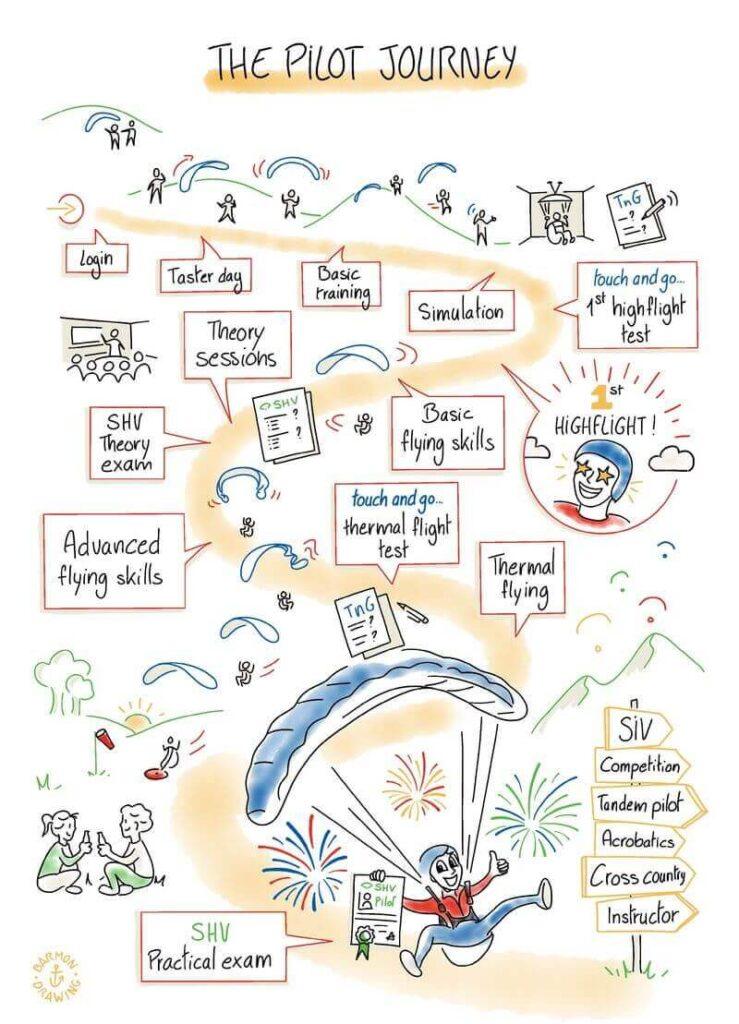 THE PILOT JOURNEY
Login
Taster day
Basic
training
Simulation
TnG
?
?
touch and go...
1st highflight
test
1st
HIGHFLIGHT!
Theory
sessions
SHV
?
?
SHV
Theory
exam
Basic
flying skills
Advanced
flying skills
touch and go...
thermal flight
test
TnG
?
?
Thermal
flying
SiV
Competition
Tandem pilot
Acrobatics
Cross country
Instructor
SHV
Pilot
SHV
Practical exam
BARMON
DRAWING